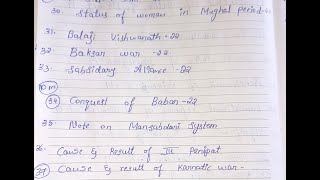 30. Status of woman in Mughal period-
31. Balaji Vishwanath-22
32. Baksar war -22
33. Sabsidary Aliance-22
10 m
34 Conquest of Baban-22
35. Note on Mansabdari System
36. Cause & Result of III Penipat
37 Cause & result of Karnatic war-